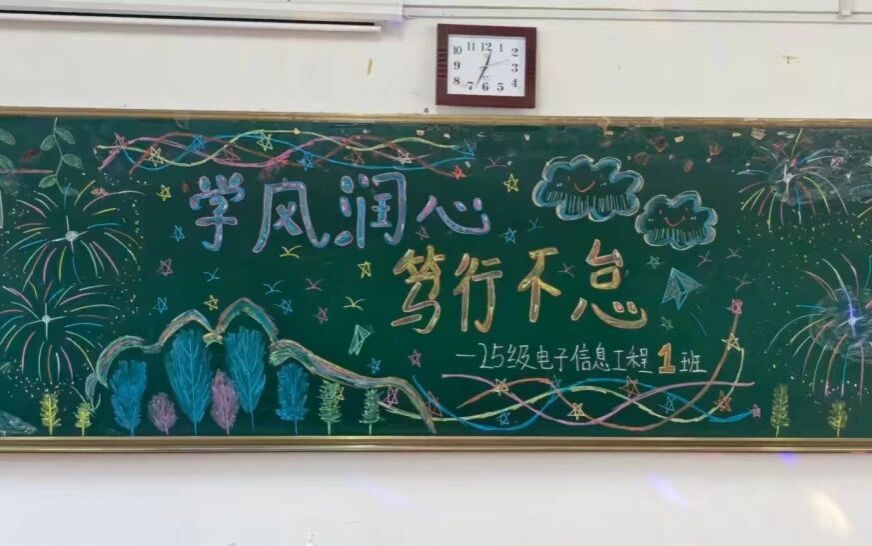 11 12 1
10 2
9 3
8 4
7 6 5
学风润心
笃行不怠
—25级电子信息工程1班